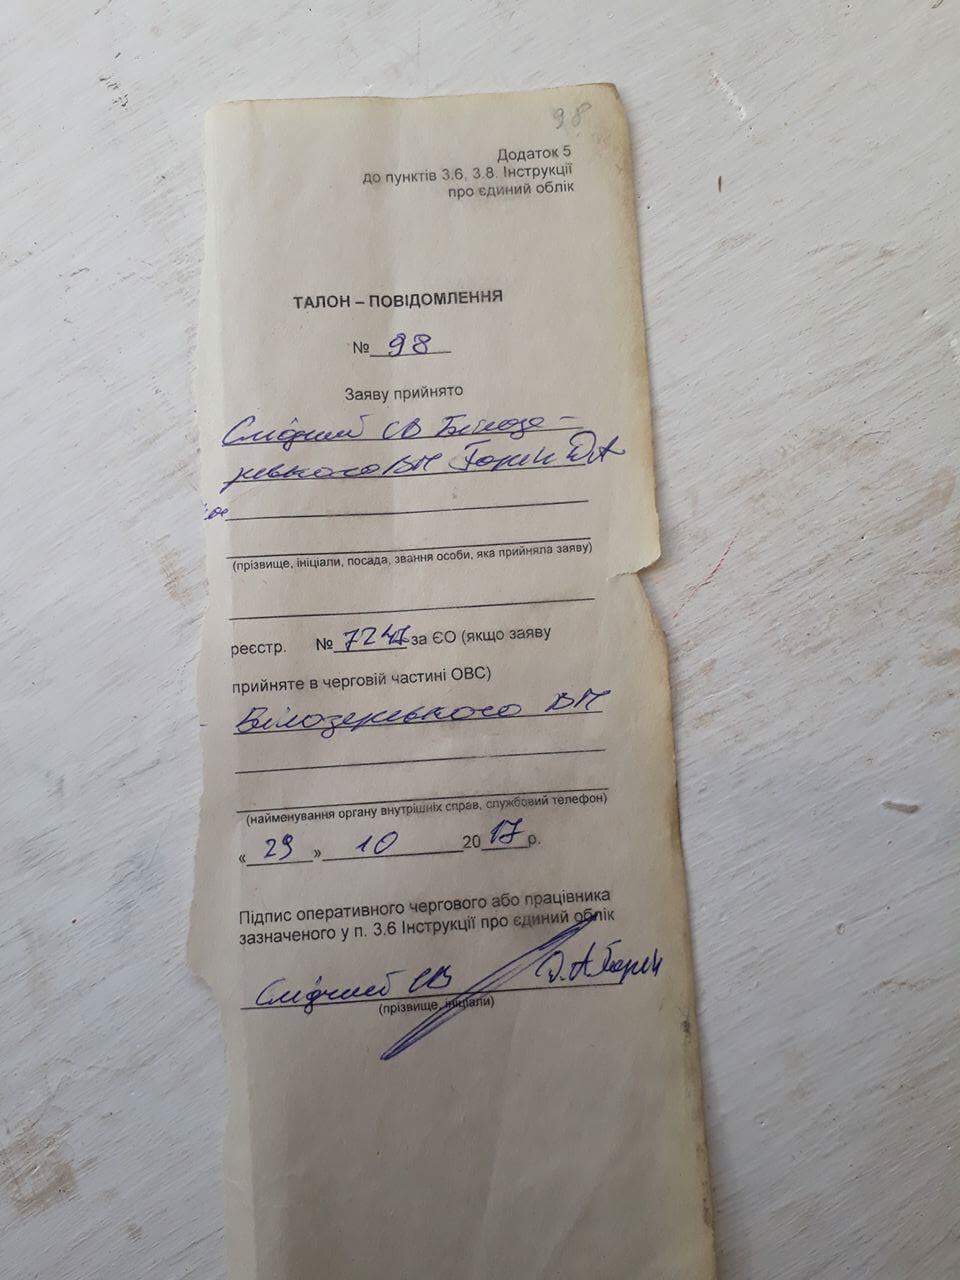 98
Додаток 5
до пунктів 3.6, 3.8. Інструкції
про єдиний облік
ТАЛОН – ПОВІДОМЛЕННЯ
№ 98
Заяву прийнято
Слідчий СВ Білозе-
рського ВП Горен Д.А
(прізвище, ініціали, посада, звання особи, яка прийняла заяву)
реєстр. № 7247 за ЄО (якщо заяву
прийняте в черговій частині ОВС)
Білозерського ВП
(найменування органу внутрішніх справ, службовий телефон)
« 29 » 10 20 17 р.
Підпис оперативного чергового або працівника
зазначеного у п. 3.6 Інструкції про єдиний облік
Слідчий СВ Д.А Горен
(прізвище, ініціали)